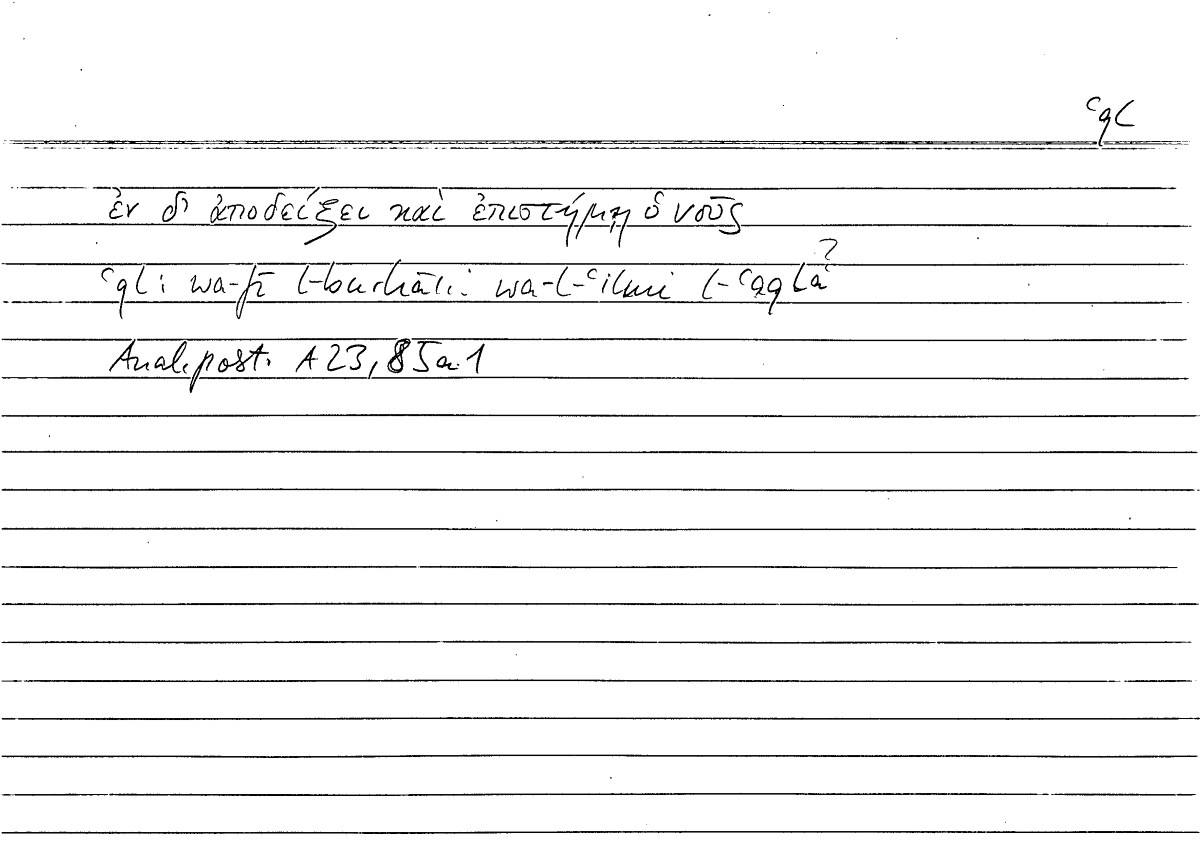 ʿql
ἐν δ' ἀποδείξει καὶ ἐπιστήμῃ ὁ νοῦς
ʿql: wa-fī l-burhāni wa-l-ʿilmi l-ʿaqla?
Anal. post. A 23, 85a1